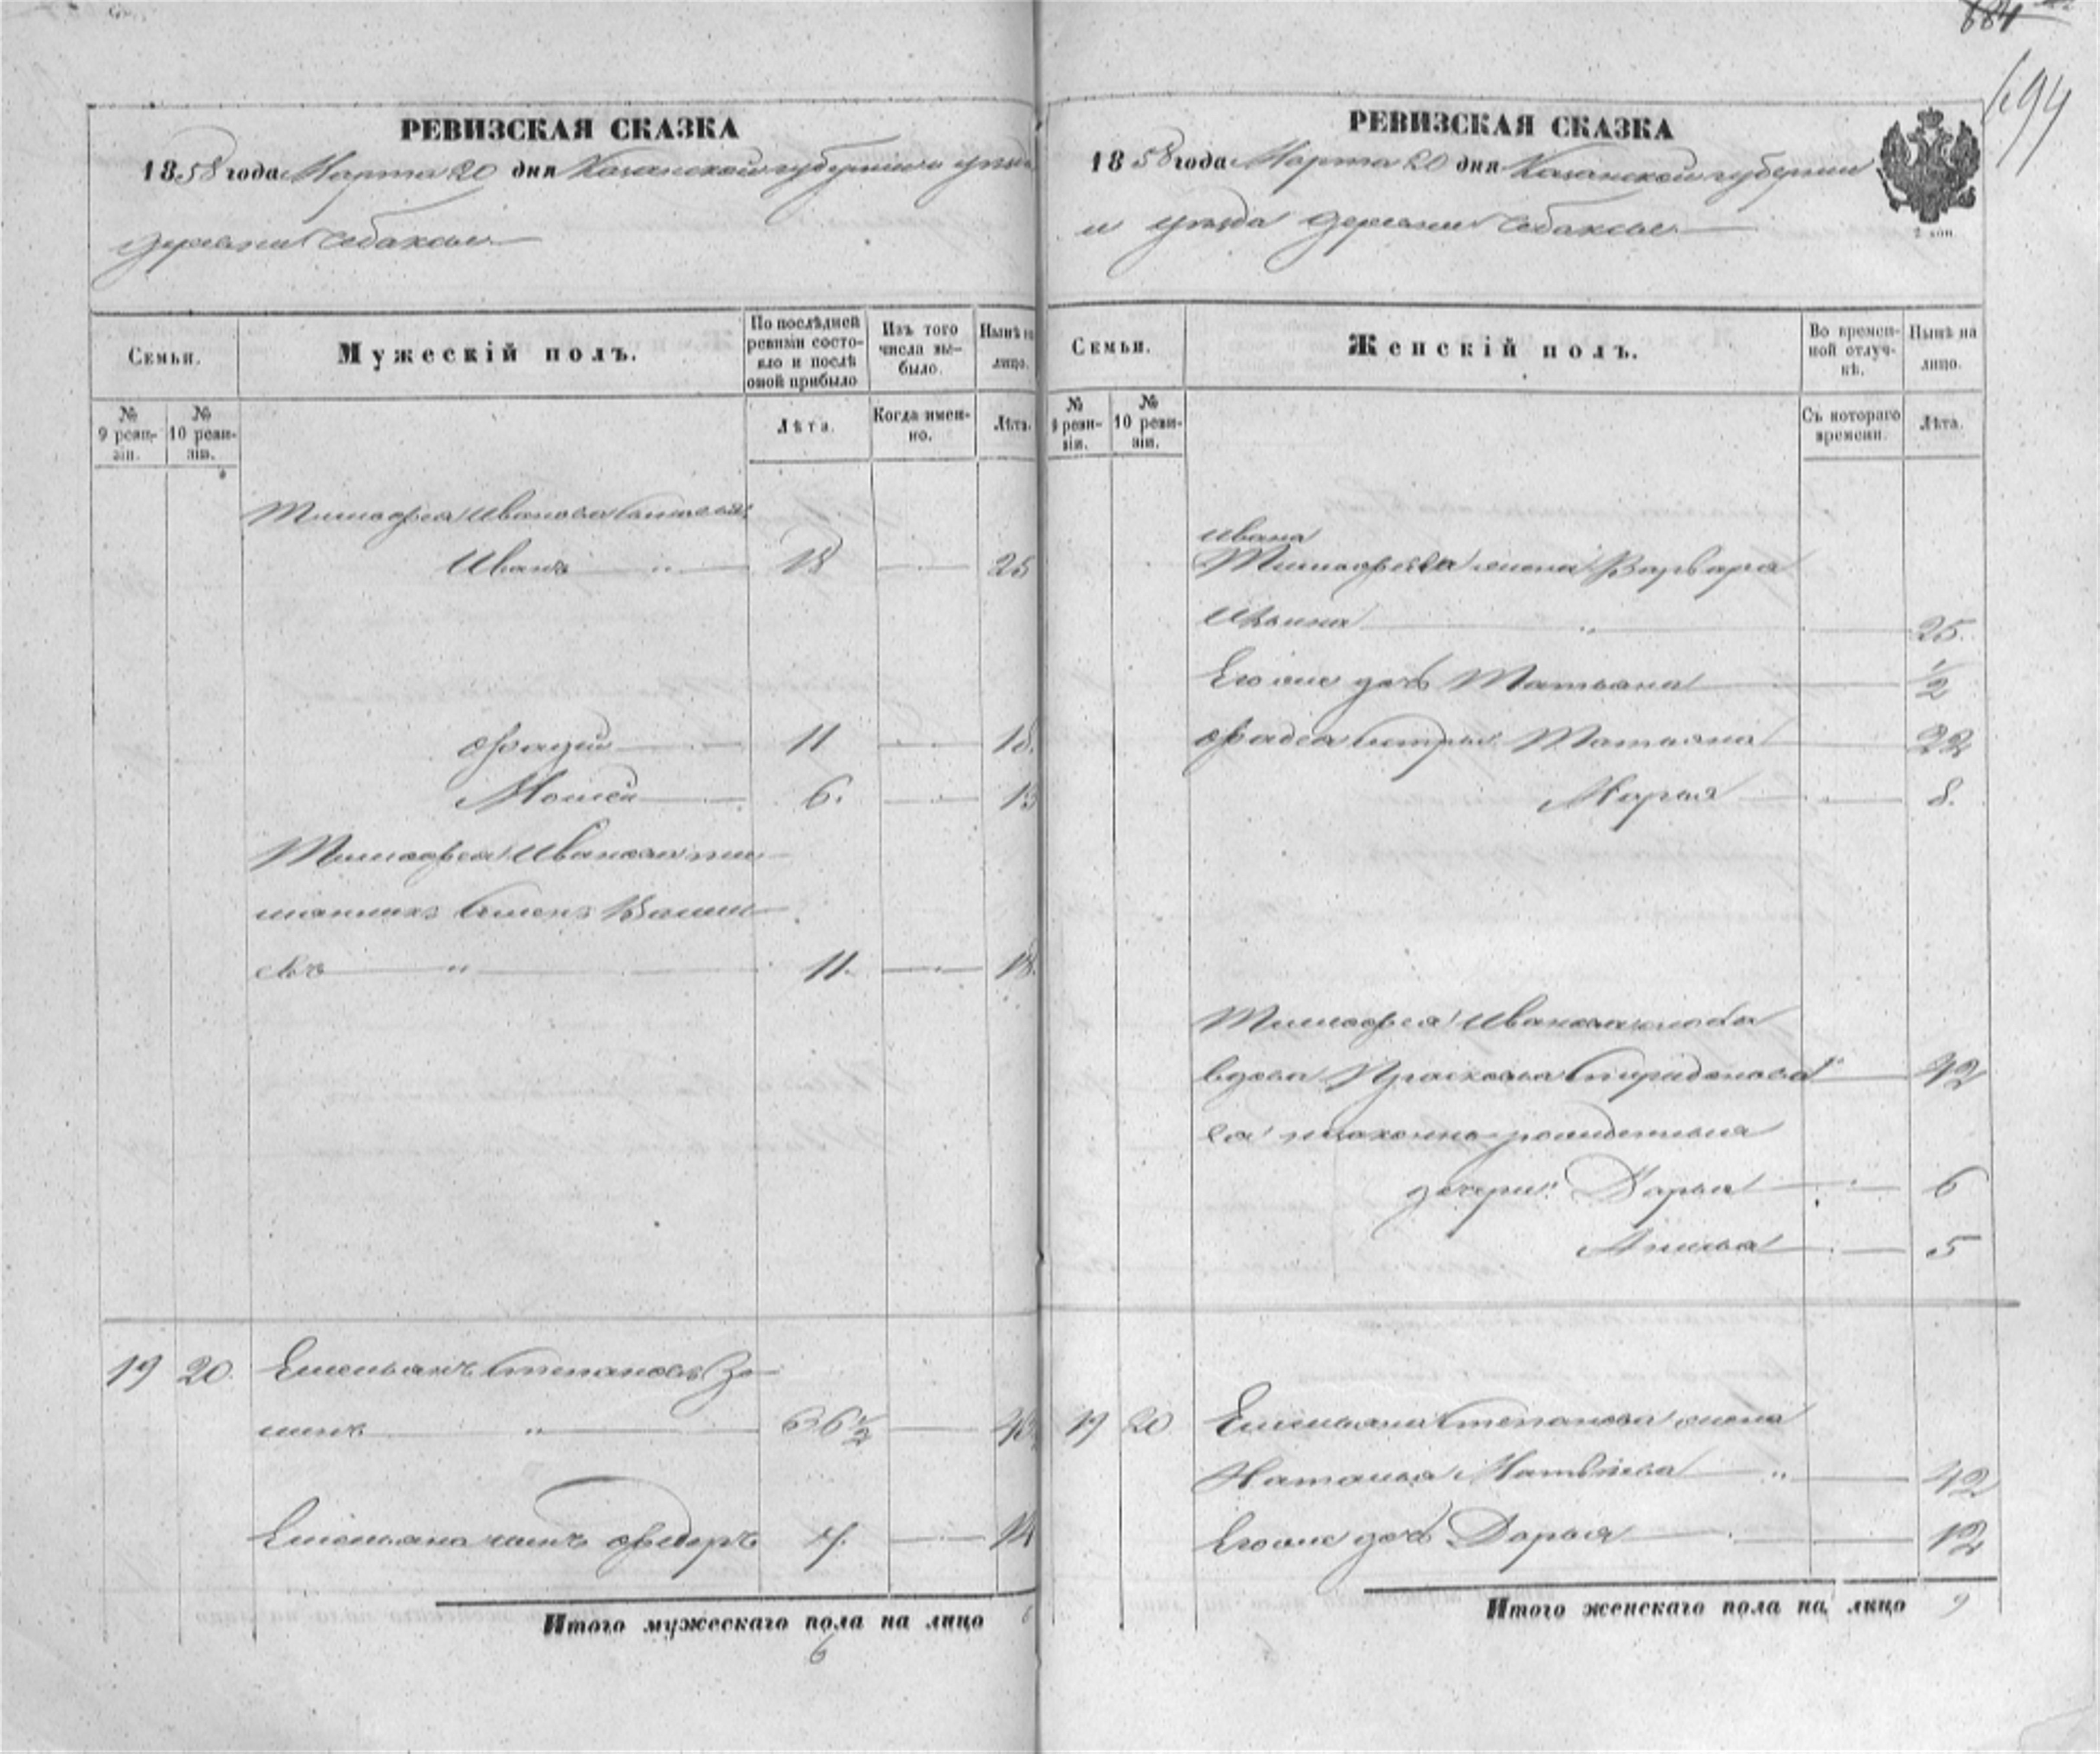 684
694
РЕВИЗСКАЯ СКАЗКА
1858 года Марта 20 дня Казанской губернии и уѣзда
деревни Собакаевъ
Семьи.
Мужескій полъ.
По послѣдней ревизіи состояло и послѣ оной прибыло
Изъ того числа выбыло.
Нынѣ на лицо.
№ 9 ревизіи.
№ 10 ревизіи.
Лѣта.
Когда именно.
Лѣта.
Тимофея Иванова сыновья
Иванъ 18 25
Фадей 11 18
Моисей 6. 13
Тимофея Иванова
Васи
лъ 11. 18
19 20. Емельянъ Степановъ Зо
минъ 36 1/2 43
Емельяна сынъ Федоръ 7.
Итого мужескаго пола на лицо 6
6
РЕВИЗСКАЯ СКАЗКА
1858 года Марта 20 дня Казанской губерніи
и уѣзда деревни
2 коп.
Семьи.
Женскій полъ.
Во временной отлучкѣ.
Нынѣ на лицо.
№ 9 ревизіи.
№ 10 ревизіи.
Съ котораго времени.
Лѣта.
Ивана
Тимофеева жена Варвара
Ильина 25.
Его же дочь Татьяна 1/2
Фадея сестры Татьяна 22
Марья 8.
Тимофея Иванова жена
вдова Прасковья Спиридонова 42
ея незаконно рожденныя
дочери: Дарья 6
Анисья 5
19 20 Емельяна Степанова жена
Наталья Матвѣева 42
Его же дочь Дарья 12
Итого женскаго пола на лицо 9